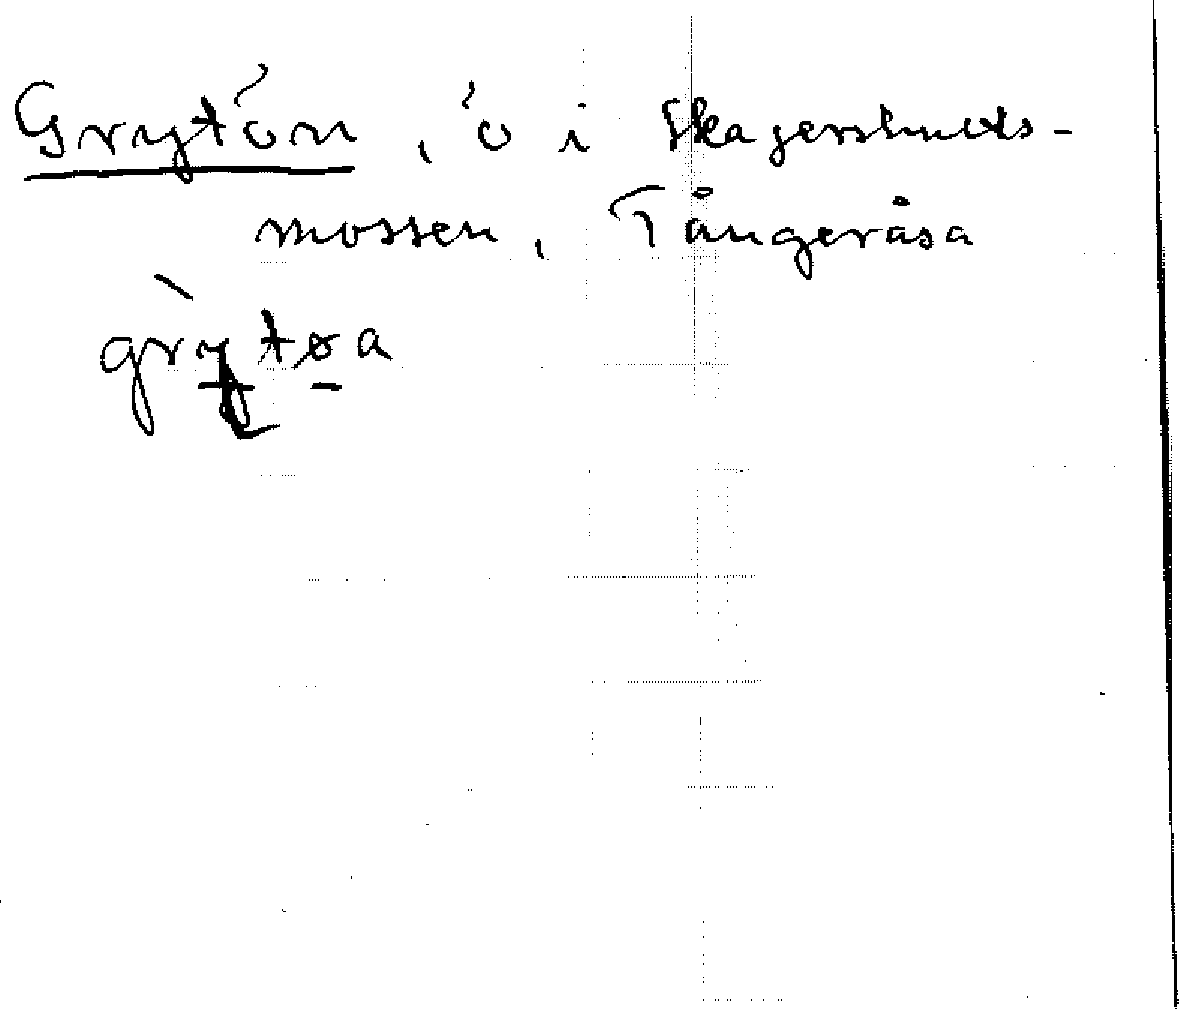 Grytön, ö i Skagershults-
mossen, Tångeråsa
grỳtøa